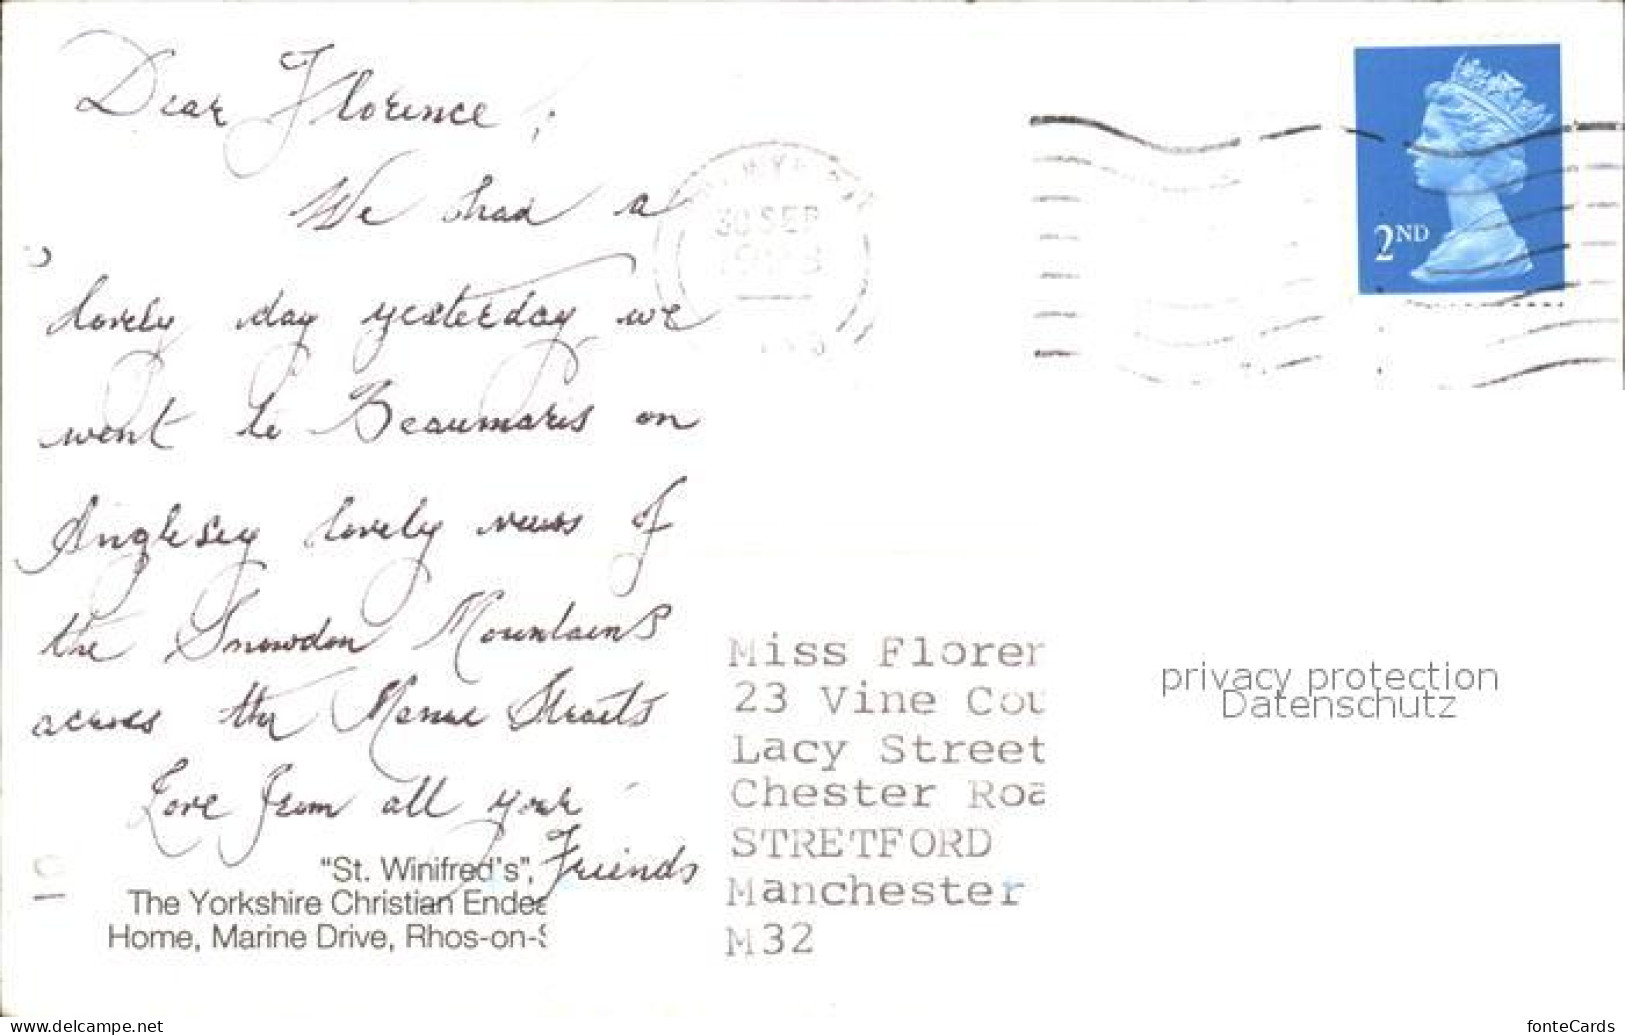 Dear Florence,
We had a
lovely day yesterday, we
went to Beaumaris on
Anglesey lovely views of
the Snowdon Mountains
across the Menai Straits
Love from all your
Friends
"St. Winifred's",
The Yorkshire Christian
Home, Marine Drive, Rhos-on-
30 SEP
2ND
Miss
23 Vine
Lacy Street
Chester
STRETFORD
Manchester
M32
privacy protection
Datenschutz
www.delcampe.net
fonteCards